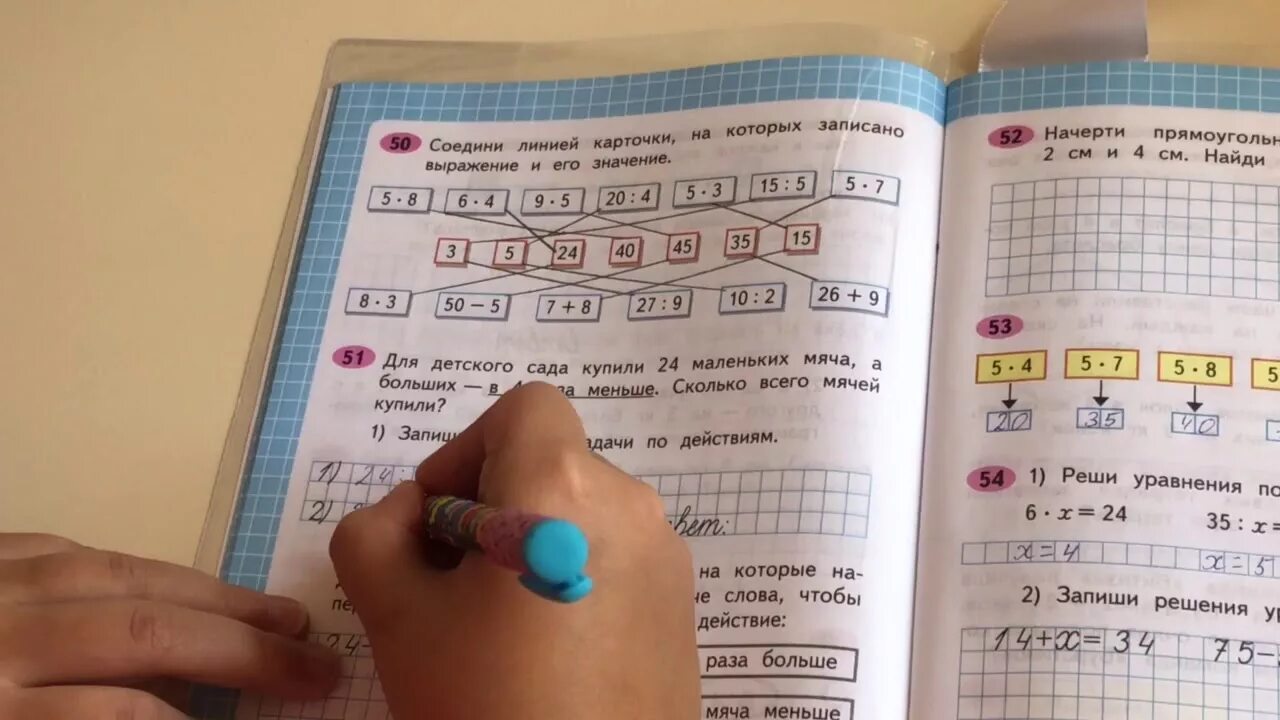 50 Соедини линией карточки, на которых записано
выражение и его значение.
5 · 8 6 · 4 9 · 5 20 : 4 5 · 3 15 : 5 5 · 7
3 5 24 40 45 35 15
8 · 3 50 − 5 7 + 8 27 : 9 10 : 2 26 + 9
51 Для детского сада купили 24 маленьких мяча, а
больших — в меньше. Сколько всего мячей
купили?
1) по действиям.
1) 24 :
2)
на которые
слова, чтобы
действие:
24
раза больше
мяча меньше
52 Начерти
2 см и 4 см. Найди
53
5 · 4 5 · 7 5 · 8
20 35 40
54 1) Реши уравнения
6 · x = 24 35 : x =
x = 4 x = 5
2) Запиши решения
14 + x = 34 75 −